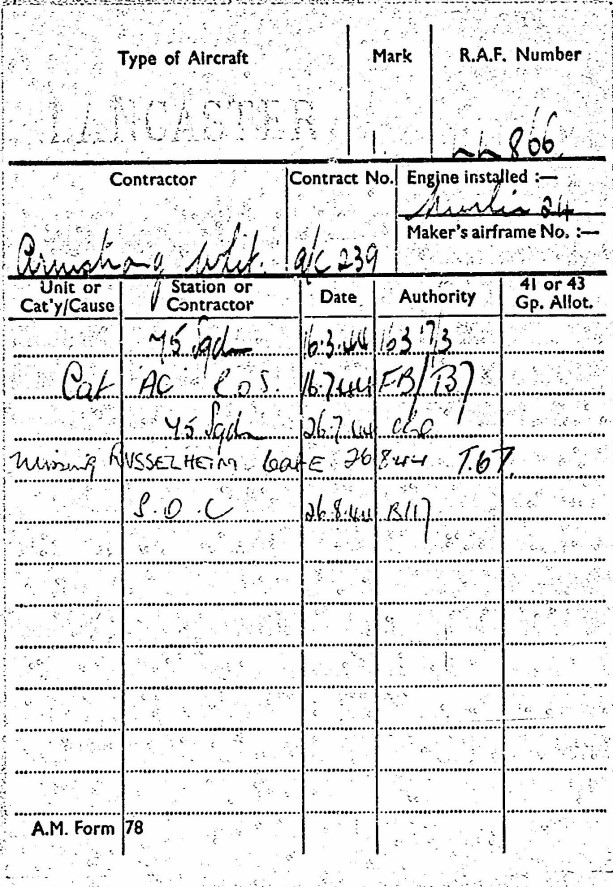 Type of Aircraft Mark R.A.F. Number
LANCASTER 1. LL866.
Contractor Contract No. Engine installed :—
Merlin 24
Maker's airframe No. :—
Armstrong Whit. a/c 239
Unit or Cat'y/Cause Station or Contractor Date Authority 41 or 43 Gp. Allot.
75 Sqdn 16.3.44 163 73
Cat AC ROS. 16.7.44 FB/
75 Sqdn 26.7.44
Missing RUSSELHEIM 26 8 44
S.O.C 26.8.44 B/17
A.M. Form 78